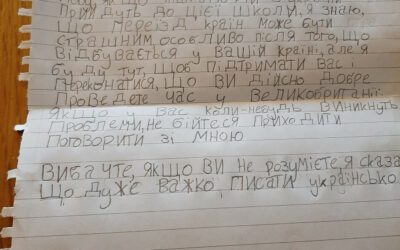 Прийдуть до цієї школи, я знаю,
що переїзд країн може бути
страшним, особливо після того, що
відбувається у вашій країні, але я
буду тут, щоб підтримати вас і
переконатися, що ви дійсно добре
проведете час у Великобританії.
Якщо у вас коли-небудь виникнуть
проблеми, не бійтеся приходити
поговорити зі мною
Вибачте, якщо ви не розумієте, я сказа
що дуже важко писати українсько